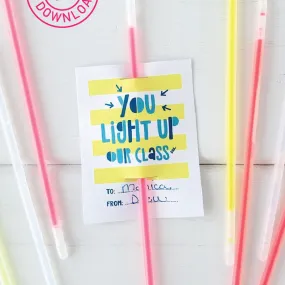 DOWNLOAD
YOU
LIGHT UP
OUR CLASS
TO: Monica
FROM: